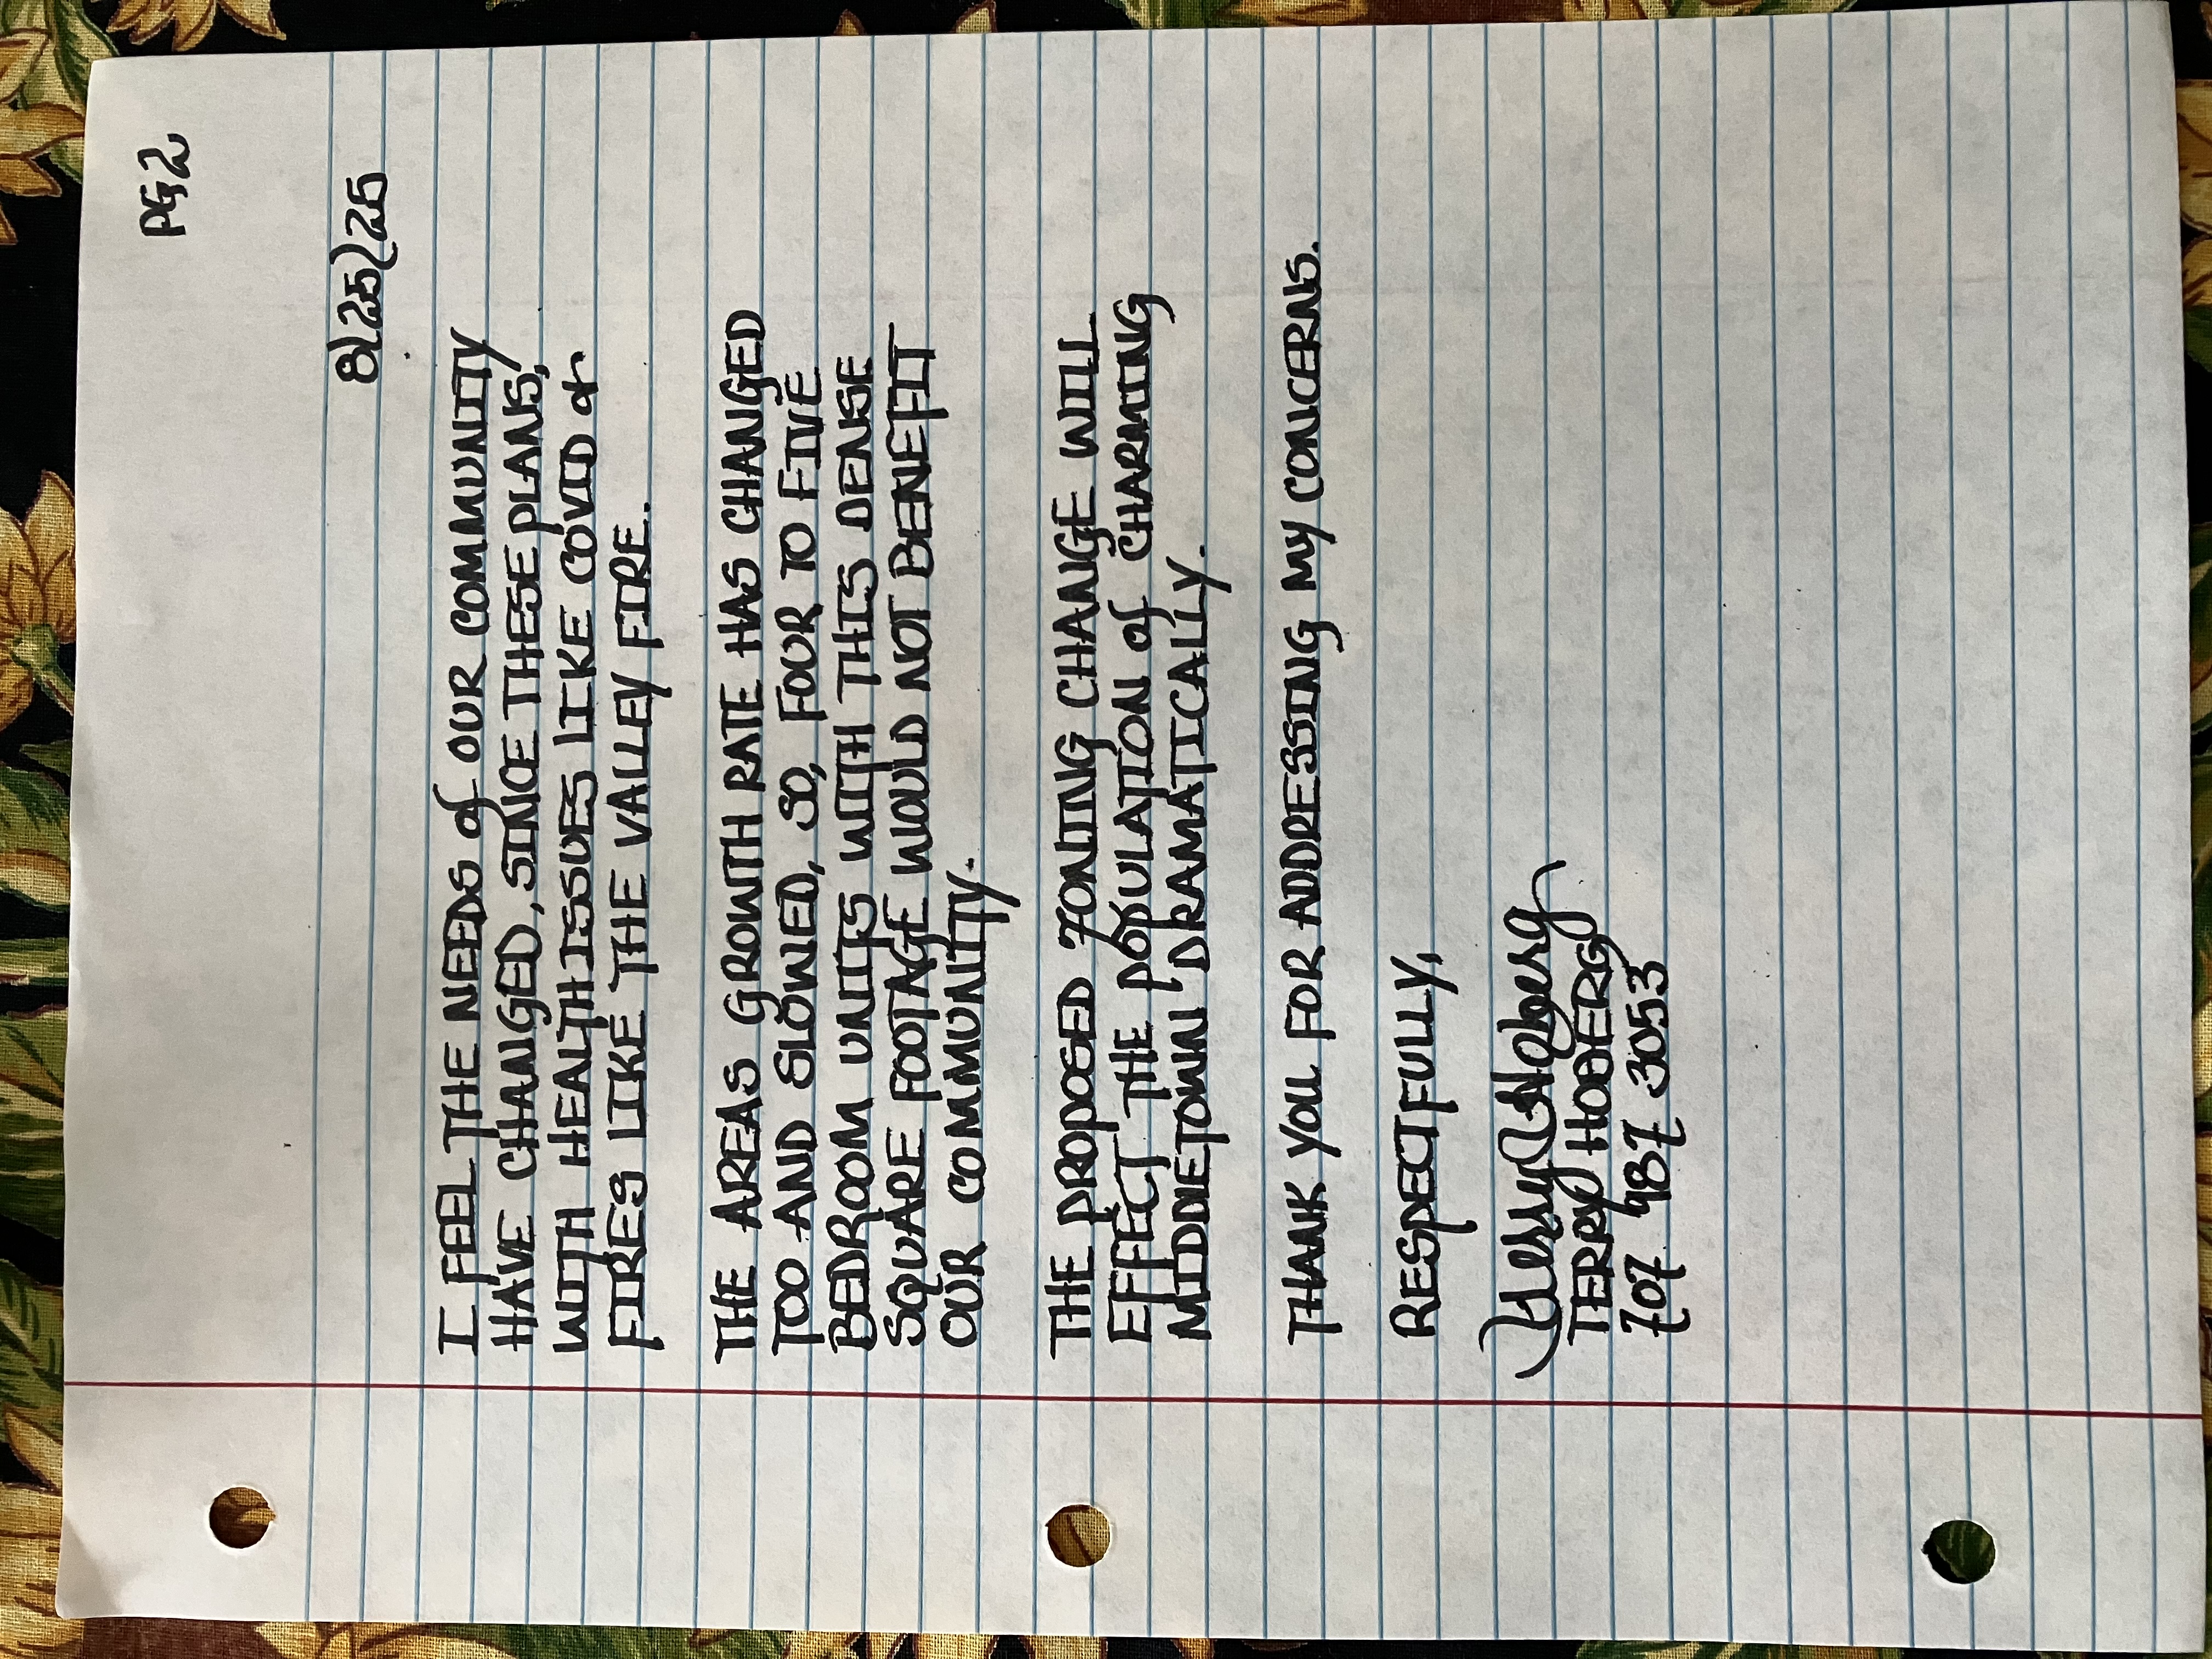 PG2
8/25/25
I FEEL THE NEEDS of OUR COMMUNITY
HAVE CHANGED, SINCE THESE PLANS,
WITH HEALTH ISSUES LIKE COVID &
FIRES LIKE THE VALLEY FIRE.
THE AREAS GROWTH RATE HAS CHANGED
TOO AND SLOWED, SO, FOUR TO FIVE
BEDROOM UNITS WITH THIS DENSE
SQUARE FOOTAGE WOULD NOT BENEFIT
OUR COMMUNITY.
THE PROPOSED ZONING CHANGE WILL
EFFECT THE POPULATION of CHARMING
MIDDLETOWN DRAMATICALLY.
THANK YOU FOR ADDRESSING MY CONCERNS.
RESPECTFULLY,
Terry Hoberg
TERRY HOBERG
707 987 3053